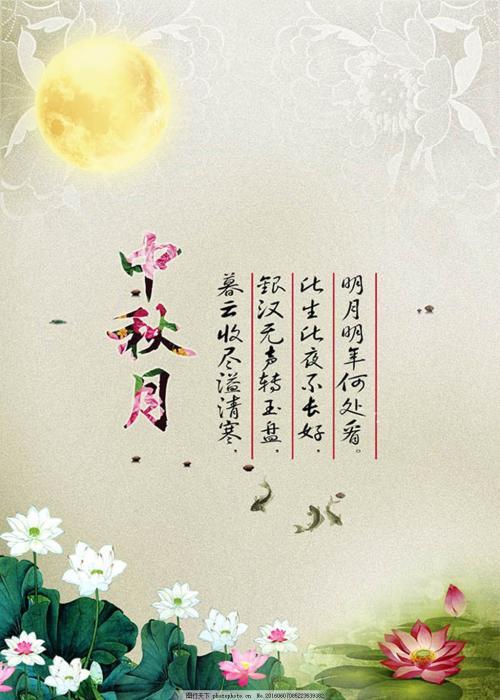 中秋月
暮云收尽溢清寒，
银汉无声转玉盘，
此生此夜不长好，
明月明年何处看。
图行天下 photophoto.cn No.20160607085223639382